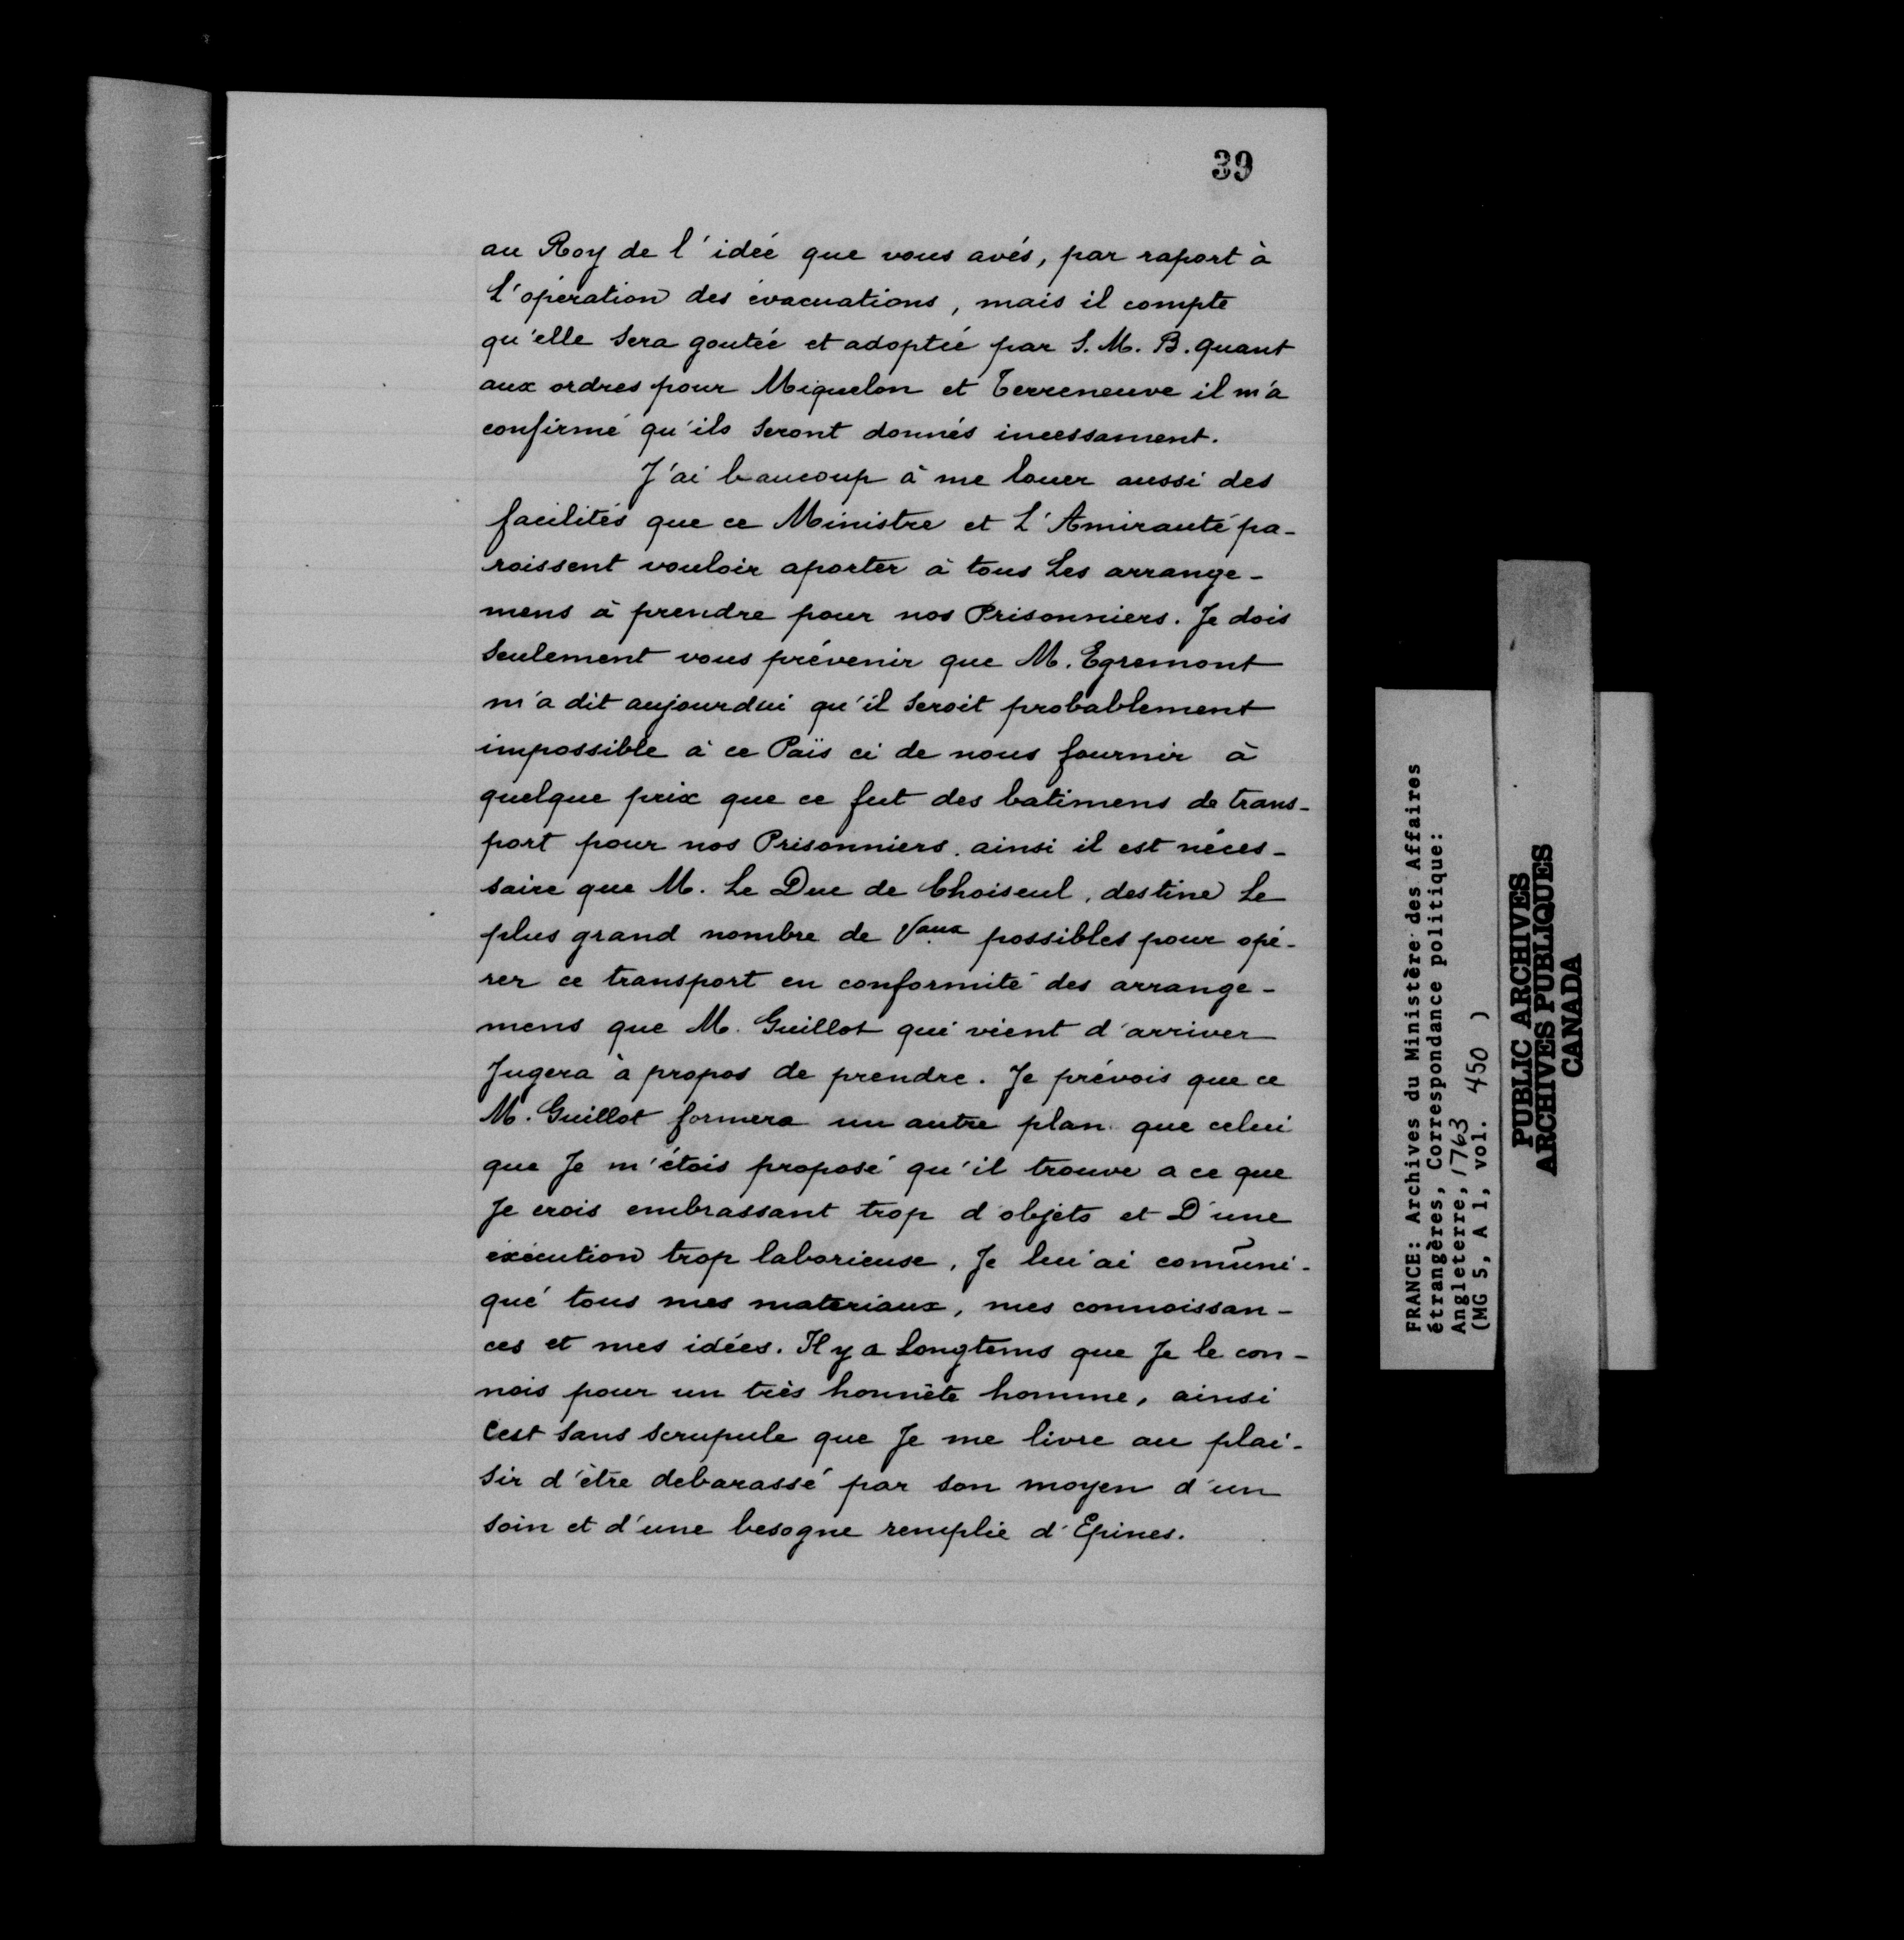 39
au Roy de l'ideé que vous avés, par raport à
L'opération des évacuations, mais il compte
qu'elle sera goutéé et adoptéé par S. M. B. quant
aux ordres pour Miquelon et Terreneuve il m'a
confirmé qu'ils seront donnés incessament.
J'ai beaucoup à me louer aussi des
facilités que ce Ministre et L'Amirauté pa-
roissent vouloir aporter à tous Les arrange-
mens à prendre pour nos Prisonniers. Je dois
seulement vous prévenir que M. Egremont
m'a dit aujourdui qu'il seroit probablement
impossible à ce Païs ci de nous fournir à
quelque prix que ce fut des batimens de trans-
port pour nos Prisonniers. ainsi il est néces-
saire que M. Le Duc de Choiseul, destine Le
plus grand nombre de Vaux possibles pour opé-
rer ce transport en conformité des arrange-
mens que M. Guillot qui vient d'arriver
Jugera à propos de prendre. Je prévois que ce
M. Guillot formera un autre plan que celui
que Je m'étois proposé qu'il trouve a ce que
Je crois embrassant trop d'objets et D'une
exécution trop laborieuse, Je lui ai comuni-
qué tous mes materiaux, mes connoissan-
ces et mes idées. Il y a Longtems que Je le con-
nois pour un très honnète homme, ainsi
C'est sans scrupule que Je me livre au plai-
sir d'ètre debarassé par son moyen d'un
soin et d'une besogne remplie d'Epines.
FRANCE: Archives du Ministère des Affaires
étrangères, Correspondance politique:
Angleterre, 1763
(MG 5, A 1, vol. 450 )
PUBLIC ARCHIVES
ARCHIVES PUBLIQUES
CANADA